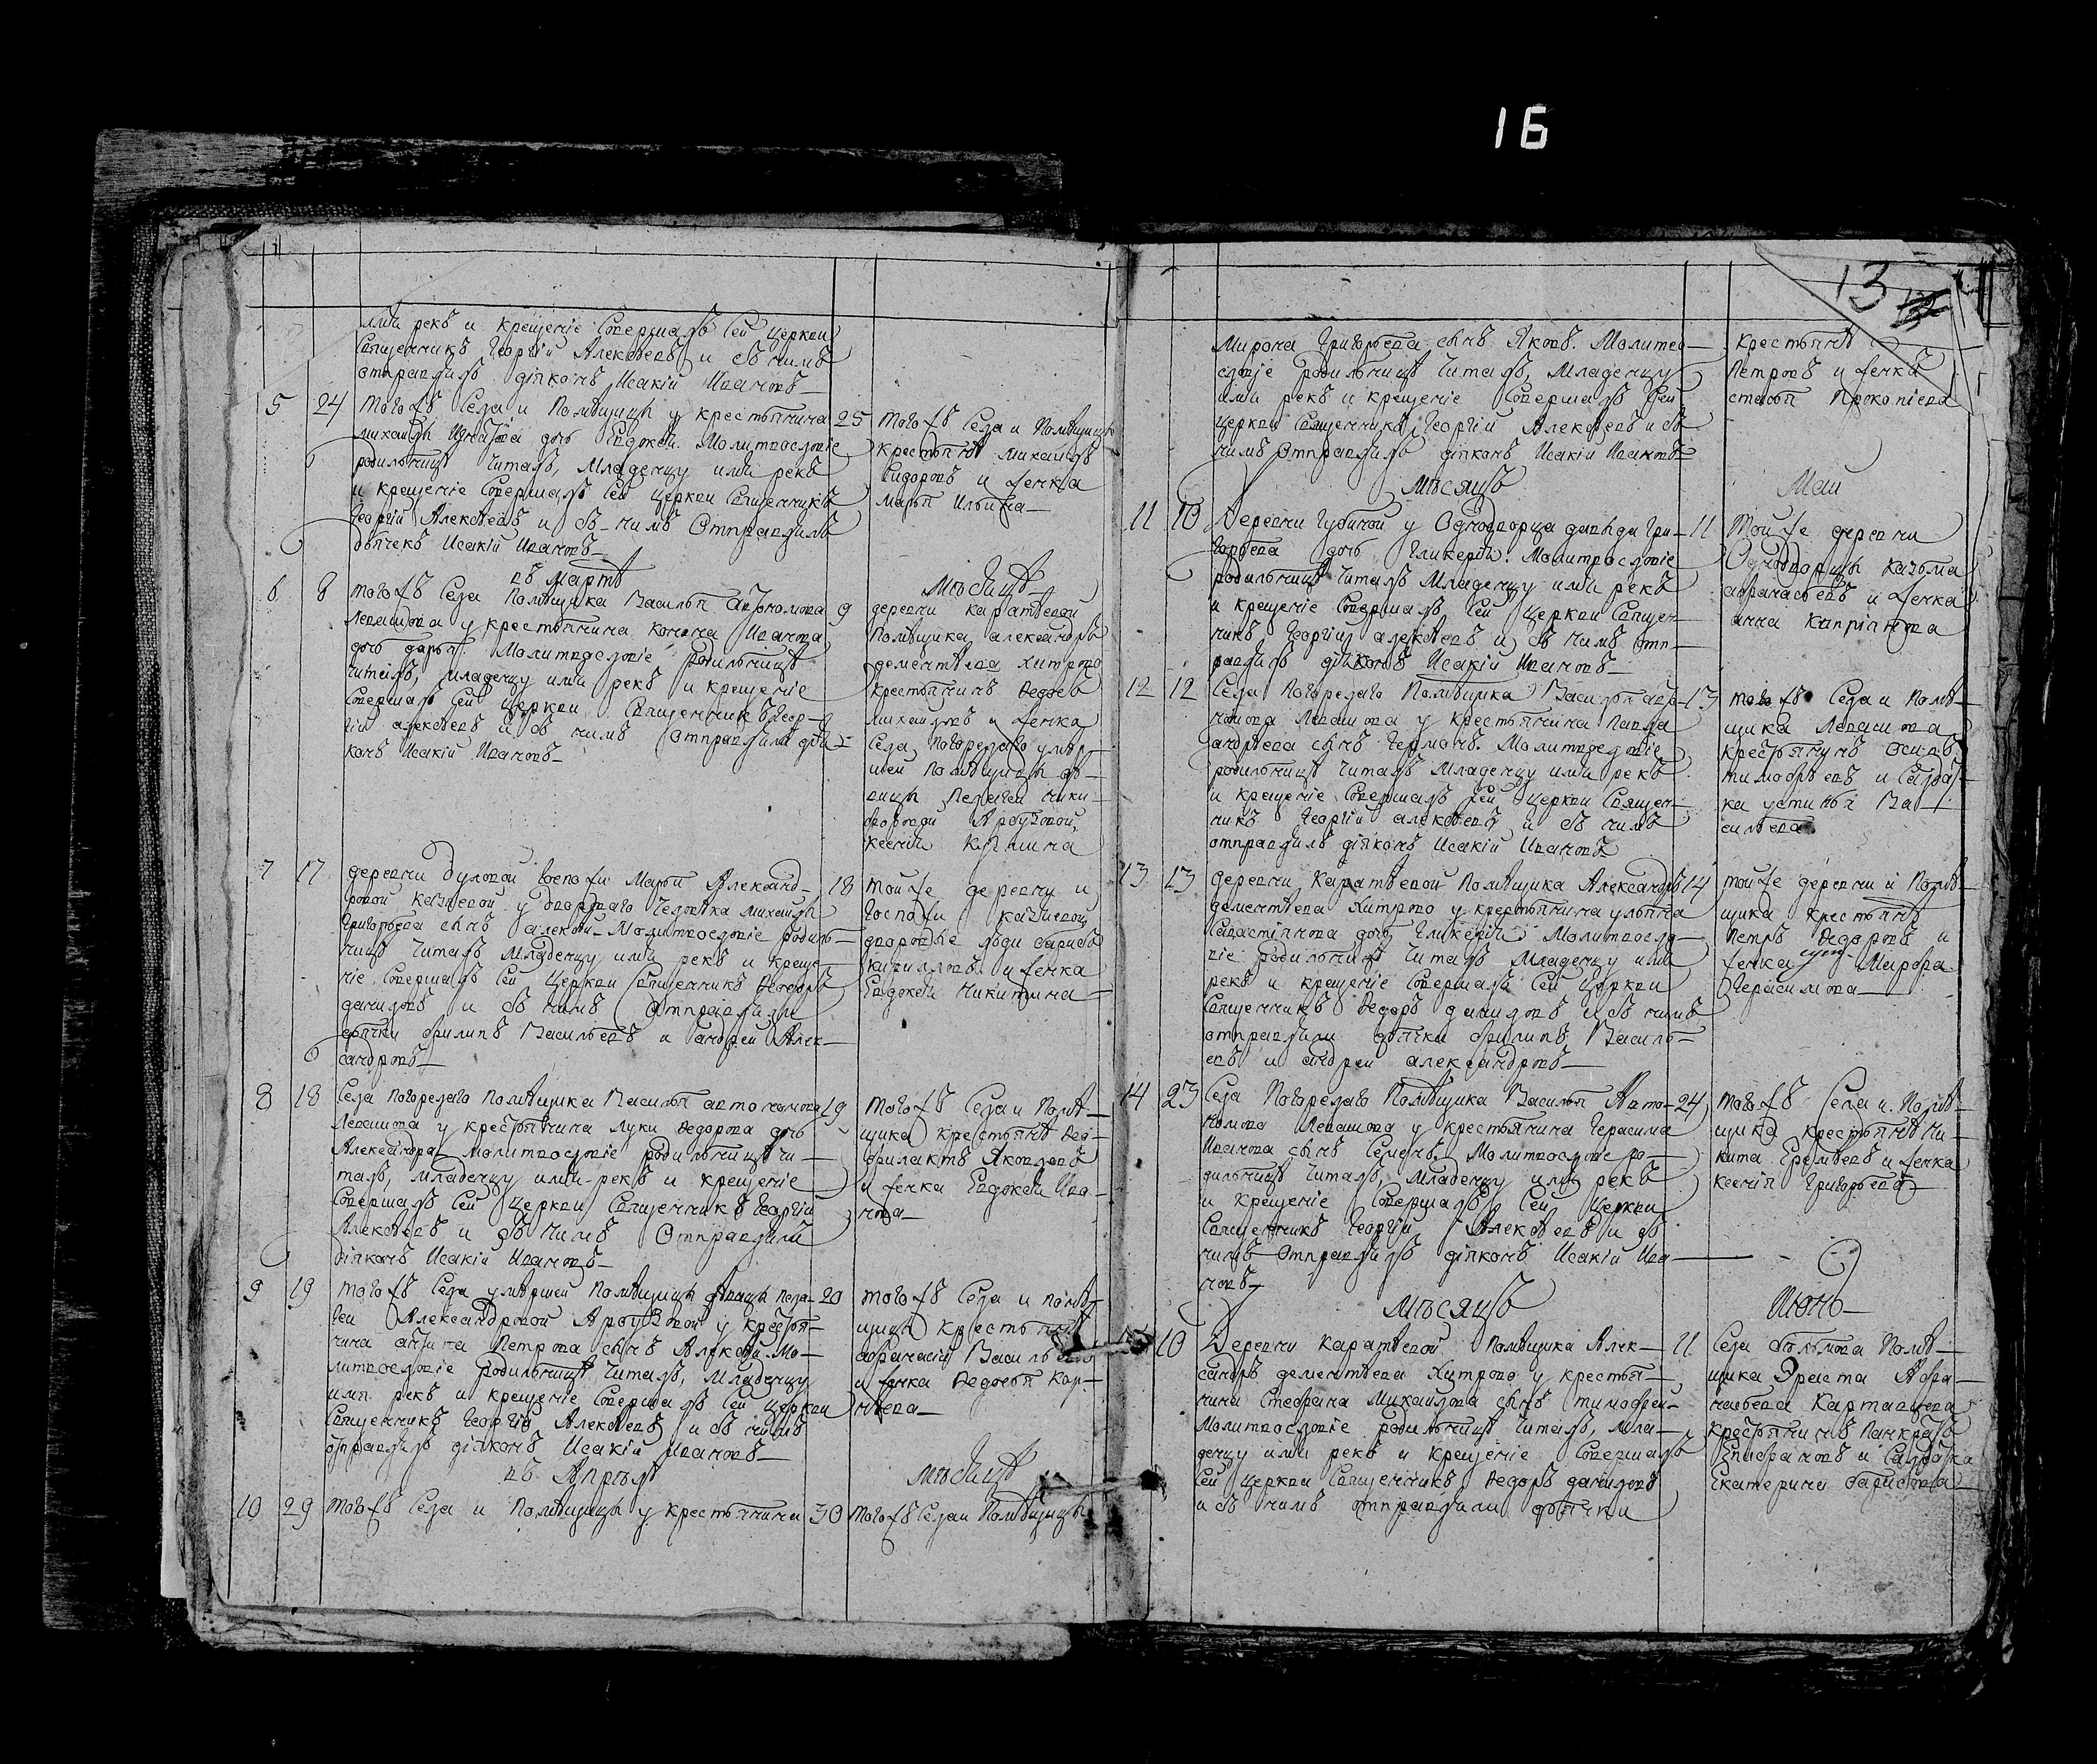 16
13
имя рекъ и крещенїе совершалъ сей церкви
священникъ Георгїй Алексѣевъ и съ нимъ
отправлялъ дїяконъ Исакїй Ивановъ
5 24 тогожъ села и помѣщицы у крестьянина
Михаилы дочь Евдокея. Молитвословїе
родильницѣ читалъ, младенцу имя рекъ
и крещенїе совершалъ сей церкви священникъ
Георгїй Алексѣевъ и съ нимъ отправлялъ
дьячекъ Исакїй Ивановъ
25 тогожъ села и помѣщицы
крестьянѣ Михаилъ
Сидоровъ и жонка
Марья Ильина
въ мартѣ мѣсяцѣ
6 8 тогожъ села помѣщика Василья Автономова
Левашова у крестьянина Конона Иванова
дочь Дарья. Молитвословїе родильницѣ
читалъ, младенцу имя рекъ и крещенїе
совершалъ сей церкви священникъ Геор-
гїй Алексѣевъ и съ нимъ отправляли дїя-
конъ Исакїй Ивановъ
9 деревни Каратѣевой
помѣщика Александръ
Дементѣева Хитрово
крестьянинъ Ѳедоръ
Михаиловъ и жонка
села Погорелаго умер-
шей помѣщицы дѣ-
вицы Пелагеи Ники-
форовой
Ксения
7 17 деревни Дуловой госпожи Марьи Александ-
ровой у дворового человѣка Михаилы
Григорьева сынъ Алексѣй. Молитвословїе родиль-
ницѣ читалъ младенцу имя рекъ и креще-
нїе совершалъ сей церкви священникъ Ѳеодоръ
Даниловъ и съ нимъ отправляли
дьячки Филипъ Васильевъ и Андрей Алек-
сандровъ
18 тойже деревни и
госпожи
дворовые люди Борисъ
Кириловъ и жонка
Евдокея Никитина
8 18 села Погорелаго помѣщика Василья Автономова
Левашова у крестьянина Луки Ѳедорова дочь
Александра молитвословїе родильницѣ чи-
талъ, младенцу имя рекъ и крещенїе
совершалъ сей церкви священникъ Георгїй
Алексѣевъ и съ нимъ отправляли
дїяконъ Исакїй Ивановъ
19 тогожъ села и помѣ-
щика крестьянѣ Ѳео-
филактъ Яковлевъ
и жонка Евдокея Ива-
нова
9 19 тогожъ села умершей помѣщицы дѣвицы Пела-
геи Александровой у крестья-
нина Антипа Петрова сынъ Алексѣй. Мо-
литвословїе родильницѣ читалъ, младенцу
имя рекъ и крещенїе совершалъ сей церкви
священникъ Георгїй Алексѣевъ и съ нимъ
отправлялъ дїяконъ Исакїй Ивановъ
20 тогожъ села и помѣ-
щицы крестьянѣ
Афанасїй Васильевъ
и жонка Ѳедосья Кор-
нѣева
въ Апрѣлѣ мѣсяцѣ
10 29 тогожъ села и помѣщицы у крестьянина
30 тогожъ села и помѣщицы
Мирона Григорьева сынъ Яковъ. Молитво-
словїе родильницѣ читалъ, младенцу
имя рекъ и крещенїе совершалъ сей
церкви священникъ Георгїй Алексѣевъ и съ
нимъ отправлялъ дїяконъ Исакїй Ивановъ
крестьянѣ
Петровъ и жонка
Прокопїева
мѣсяцъ Маи
11 10 деревни Губиной у однодворца Давыда Гри-
горьева дочь Гликерїя. Молитвословїе
родильницѣ читалъ младенцу имя рекъ
и крещенїе совершалъ сей церкви священ-
никъ Георгїй Алексѣевъ и съ нимъ отп-
равлялъ дїяконъ Исакїй Ивановъ
11 тойже деревни
однодворцы Казьма
Афанасьевъ и жонка
Анна Капрїянова
12 12 села Погорелаго помѣщика Василья Авто-
номова Левашова у крестьянина Павла
Андрѣева сынъ Германъ. Молитвословїе
родильницѣ читалъ младенцу имя рекъ
и крещенїе совершалъ сей церкви священ-
никъ Георгїй Алексѣевъ и съ нимъ
отправлялъ дїяконъ Исакїй Ивановъ
13 тогожъ села и помѣ-
щика Левашова
крестьянинъ Осипъ
Тимофѣевъ и салдат-
ка Устинья Ва-
сильева
13 13 деревни Каратѣевой помѣщика Александръ
Дементѣева Хитрово у крестьянина Ульяна
Савастїянова дочь Гликерїя Молитвосло-
вїе родильницѣ читалъ младенцу имя
рекъ и крещенїе совершалъ сей церкви
священникъ Ѳедоръ Даниловъ и съ нимъ
отправляли дьячки Филипъ Василь-
евъ и Андрей Александровъ
14 тойже деревни и помѣ-
щика крестьянѣ
Петръ Ѳедоровъ и
жонка Марфа
Герасимова
14 23 села Погорелаго помѣщика Василья Авто-
номова Левашова у крестьянина Герасима
Иванова сынъ Семенъ. Молитвословїе ро-
дильницѣ читалъ, младенцу имя рекъ
и крещенїе совершалъ сей церкви
священникъ Георгїй Алексѣевъ и съ
нимъ отправлялъ дїяконъ Исакїй Ива-
новъ
24 тогожъ села и помѣ-
щика крестьянѣ Ни-
кита Еремѣевъ и жонка
Ксенїя Григорьева
мѣсяцъ Июнь
10 Деревни Каратѣевой помѣщика Алек-
сандръ Дементѣева Хитрово у крестья-
нина Стефана Михаилова сынъ Тимофей
молитвословїе родильницѣ читалъ, мла-
денцу имя рекъ и крещенїе совершалъ
сей церкви священникъ Ѳедоръ Даниловъ
и съ нимъ отправляли дьячки
11 села помѣ-
щика Эреста Афа-
насьева Картавцева
крестьянинъ Панкратъ
Епифановъ и салдатка
Екатерина Барисова